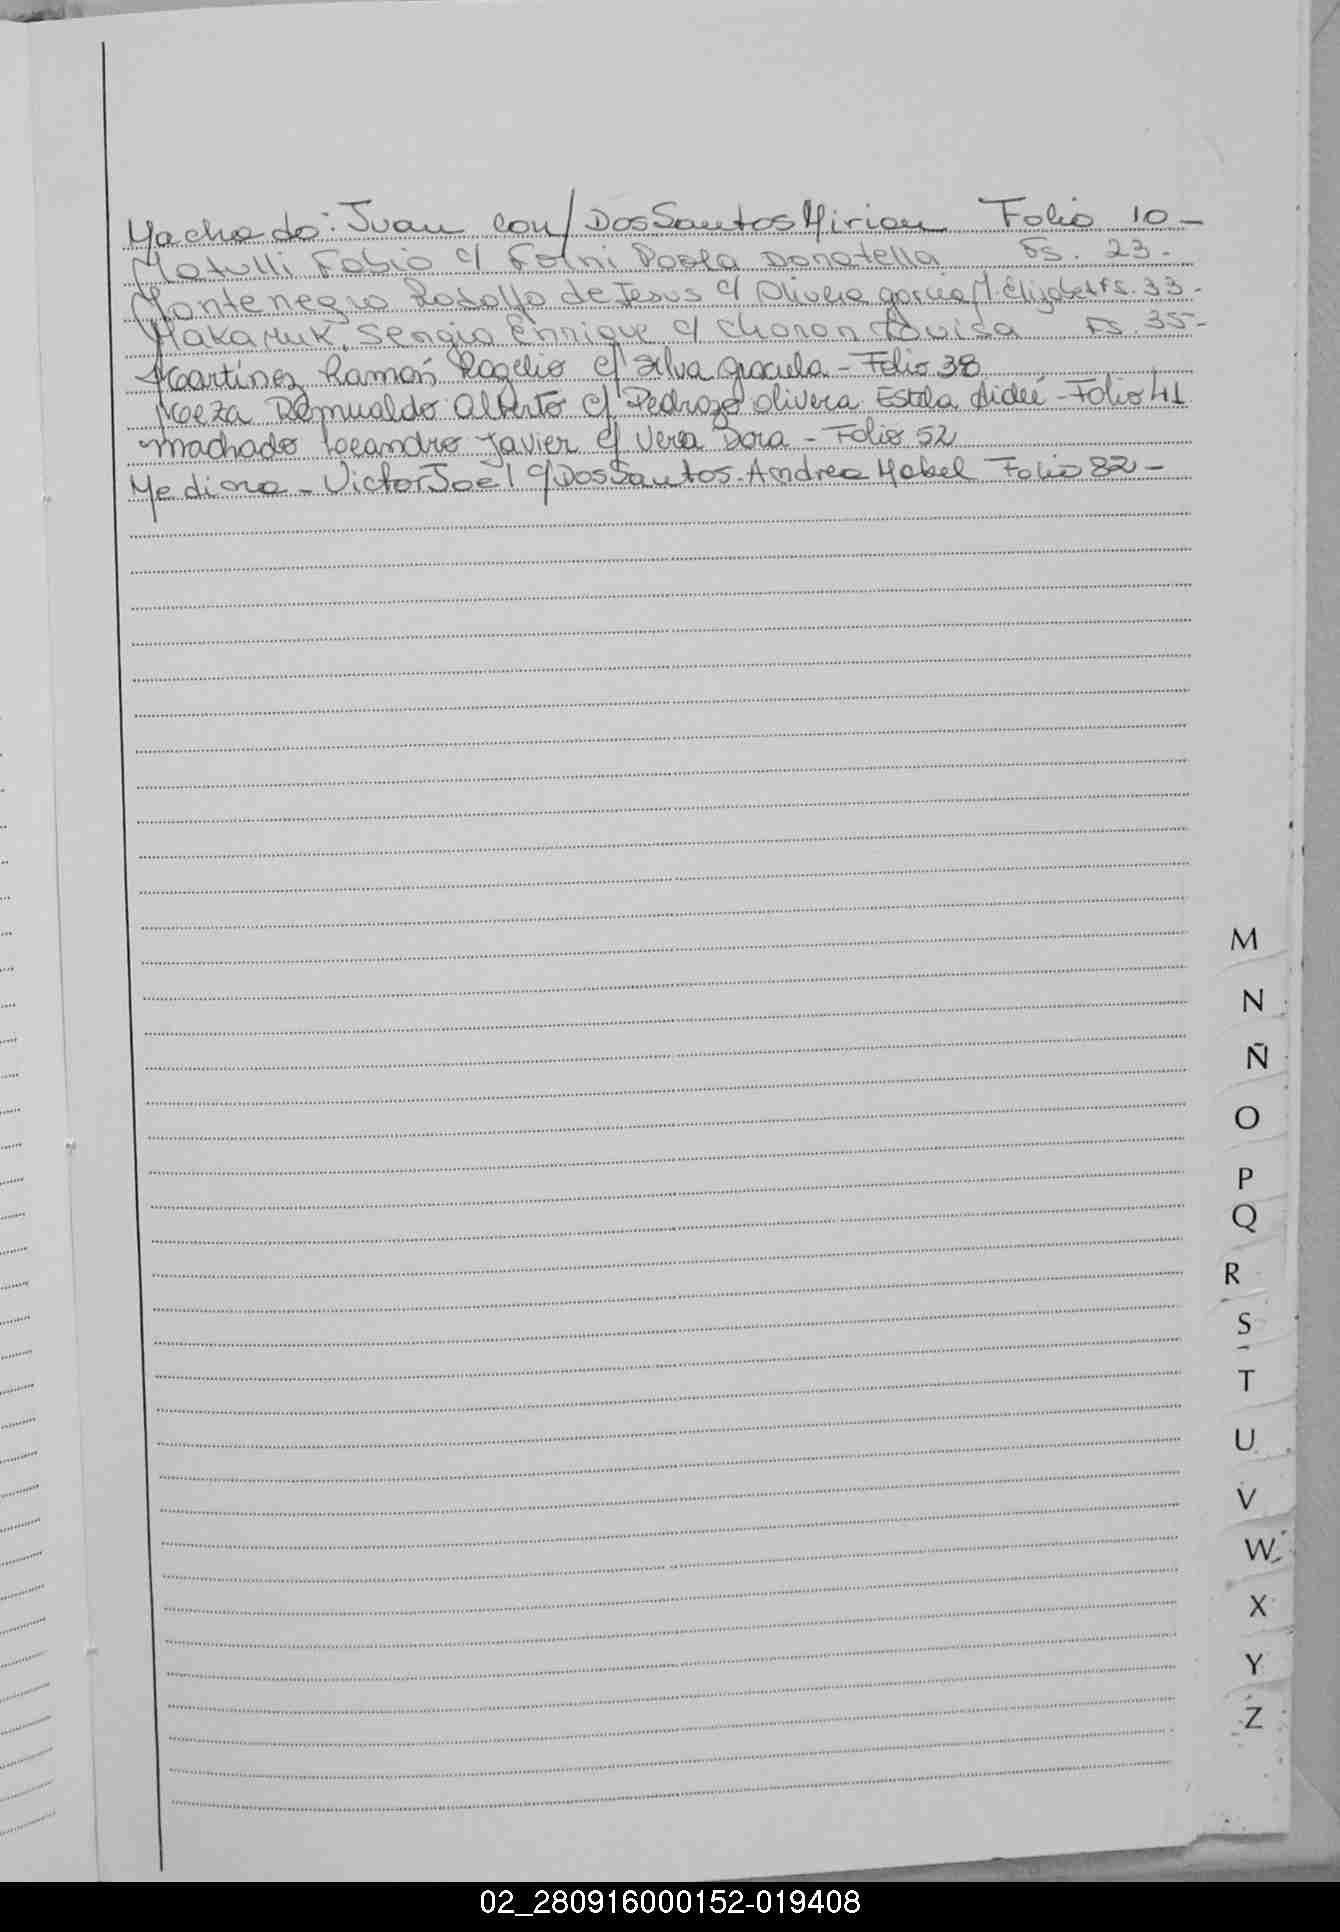 Machado: Juan con/ Dos Santos Mirian Folio 10-
Matulli Fabio c/ Forni Paola Donatella Fs. 23-
Montenegro Rodolfo de Jesus c/ Olivera garcia M. Elizabet Fs. 33-
Makaruk, Sergio Enrique c/ Choron Fs. 35-
Martínez Ramón Rogelio c/ Silva Graciela - Folio 38
Meza Romualdo Alberto c/ Pedrozo Olivera Estela Aideé - Folio 41
Machado Leandro Javier c/ Vera Dora - Folio 52
Medina - Victor Joel c/ Dos Santos - Andrea Mabel Folio 82-
M
N
Ñ
O
P
Q
R
S
T
U
V
W
X
Y
Z
02_280916000152-019408